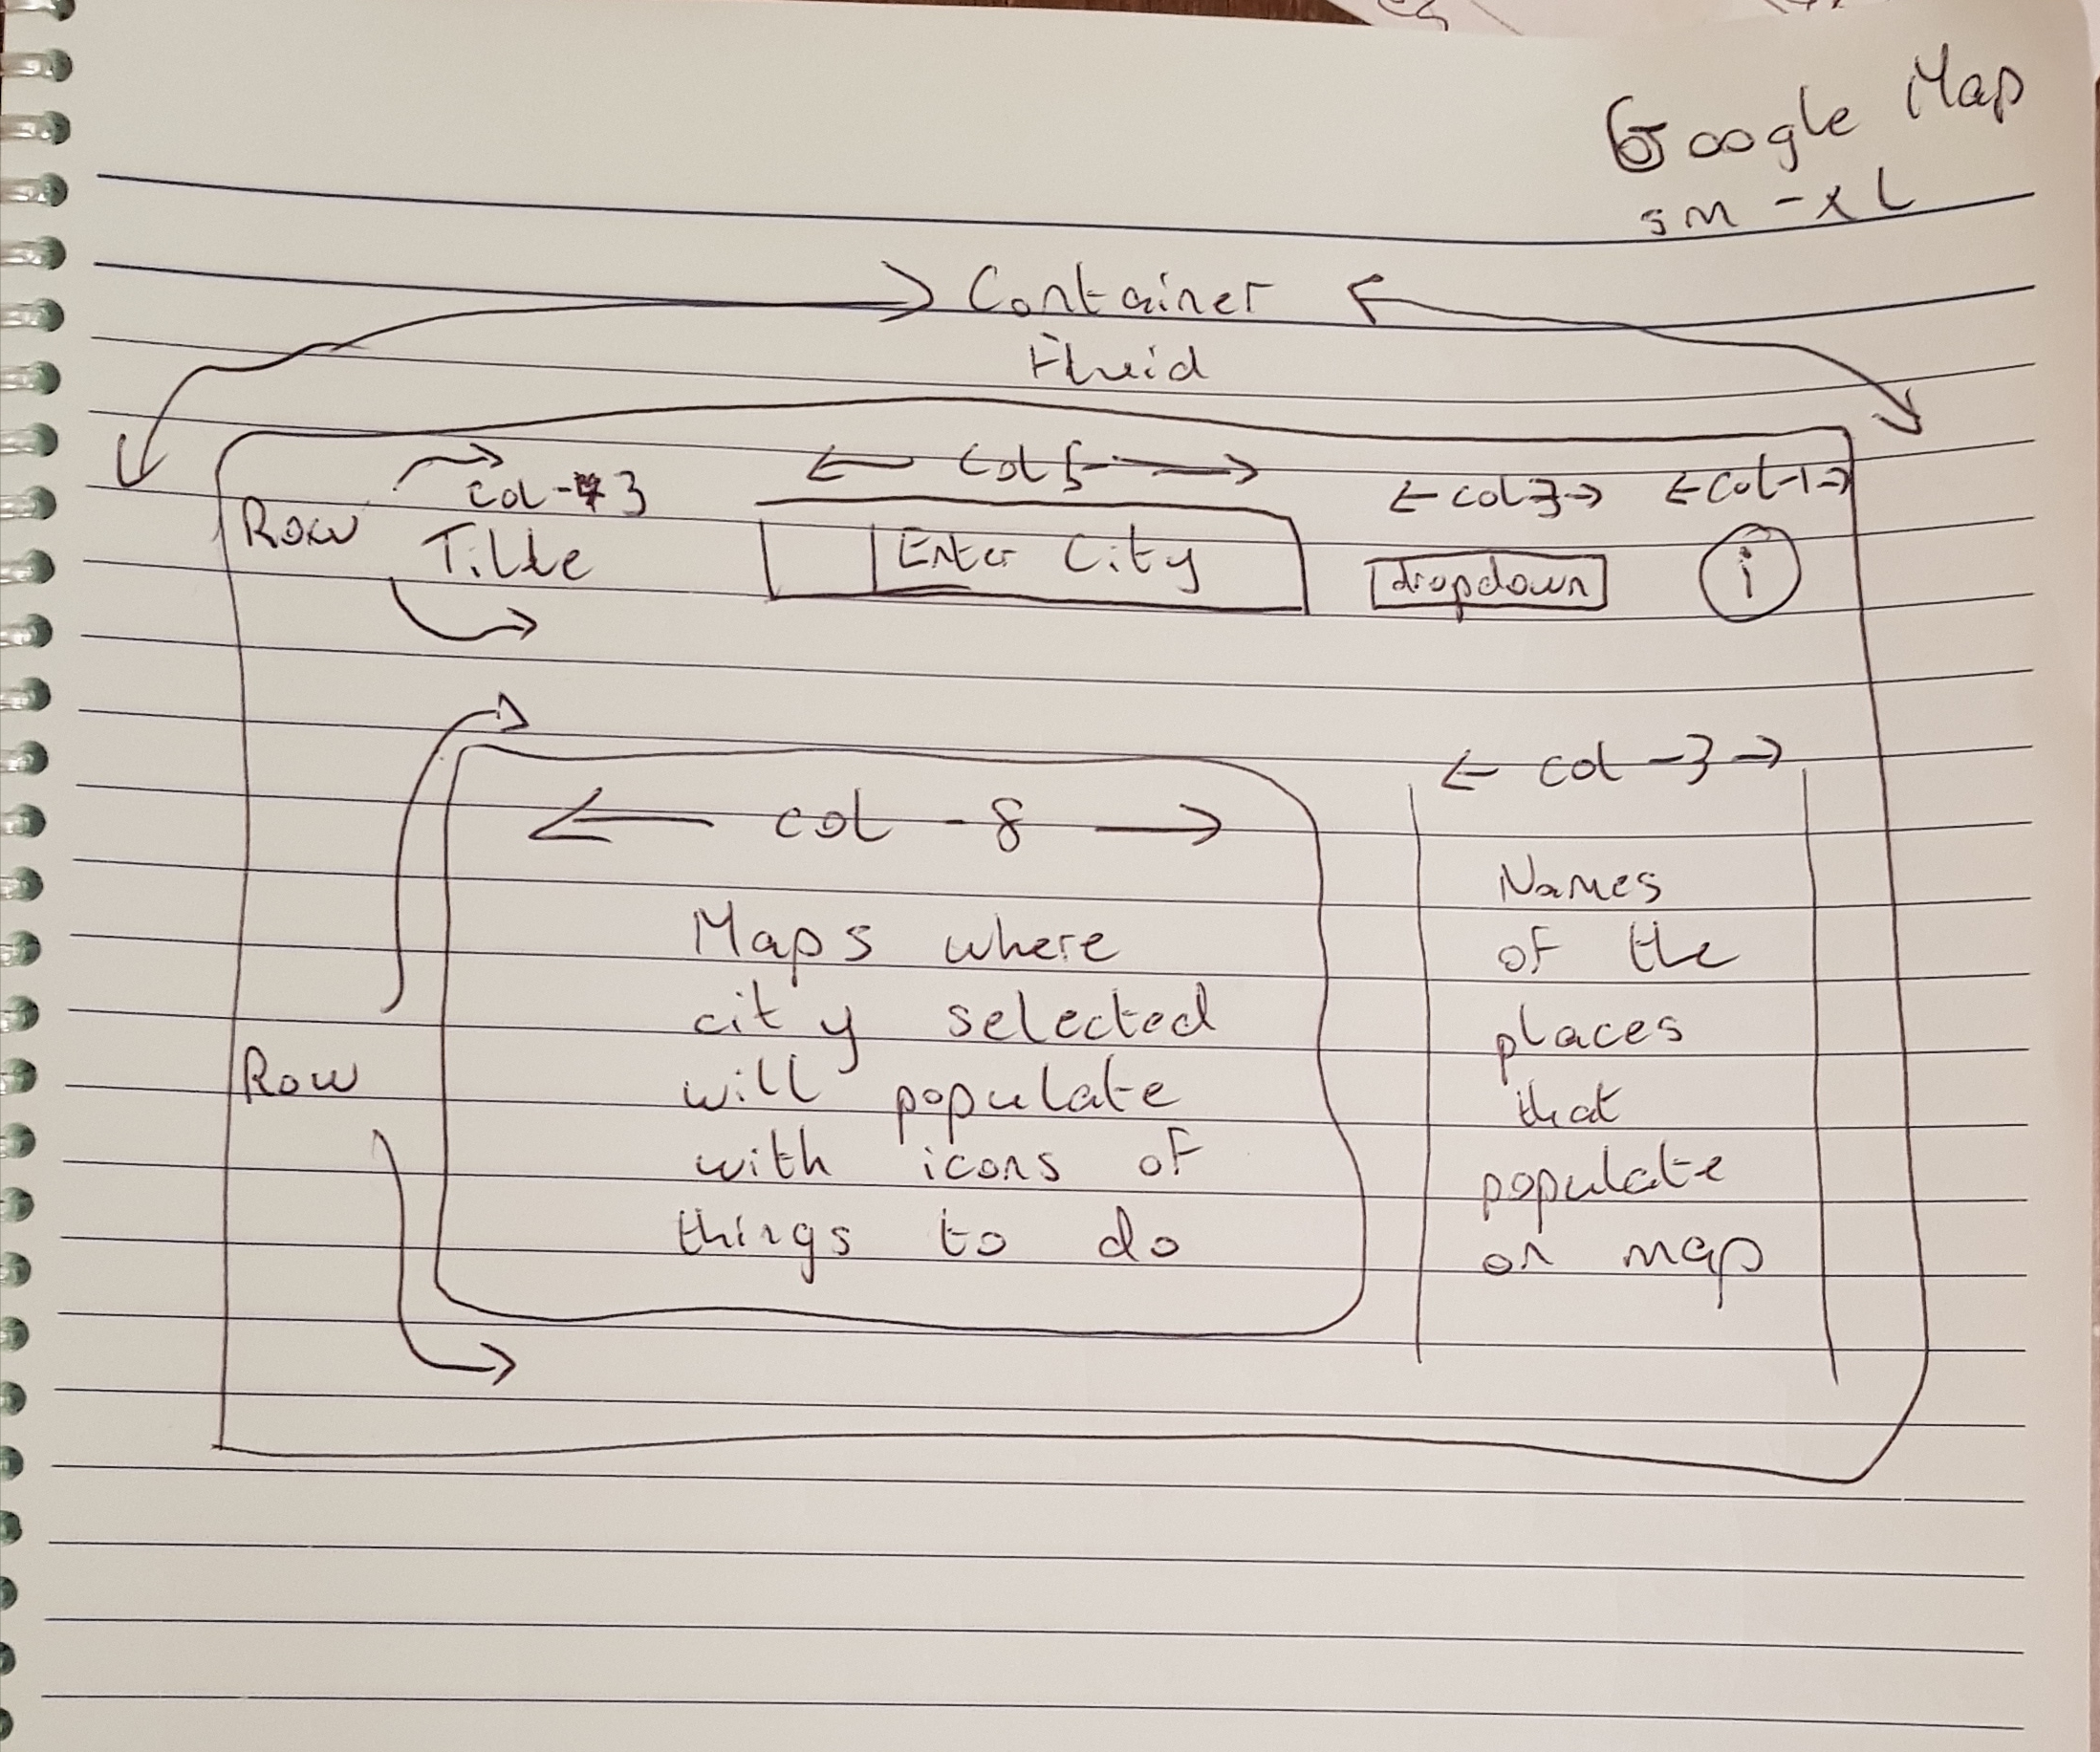 Google Map
sm - xL
Container
Fluid
Row
col - 3
Title
col 5
Enter City
col 3
dropdown
col-1
i
Row
col - 8
Maps where
city selected
will populate
with icons of
things to do
col - 3
Names
of the
places
that
populate
on map